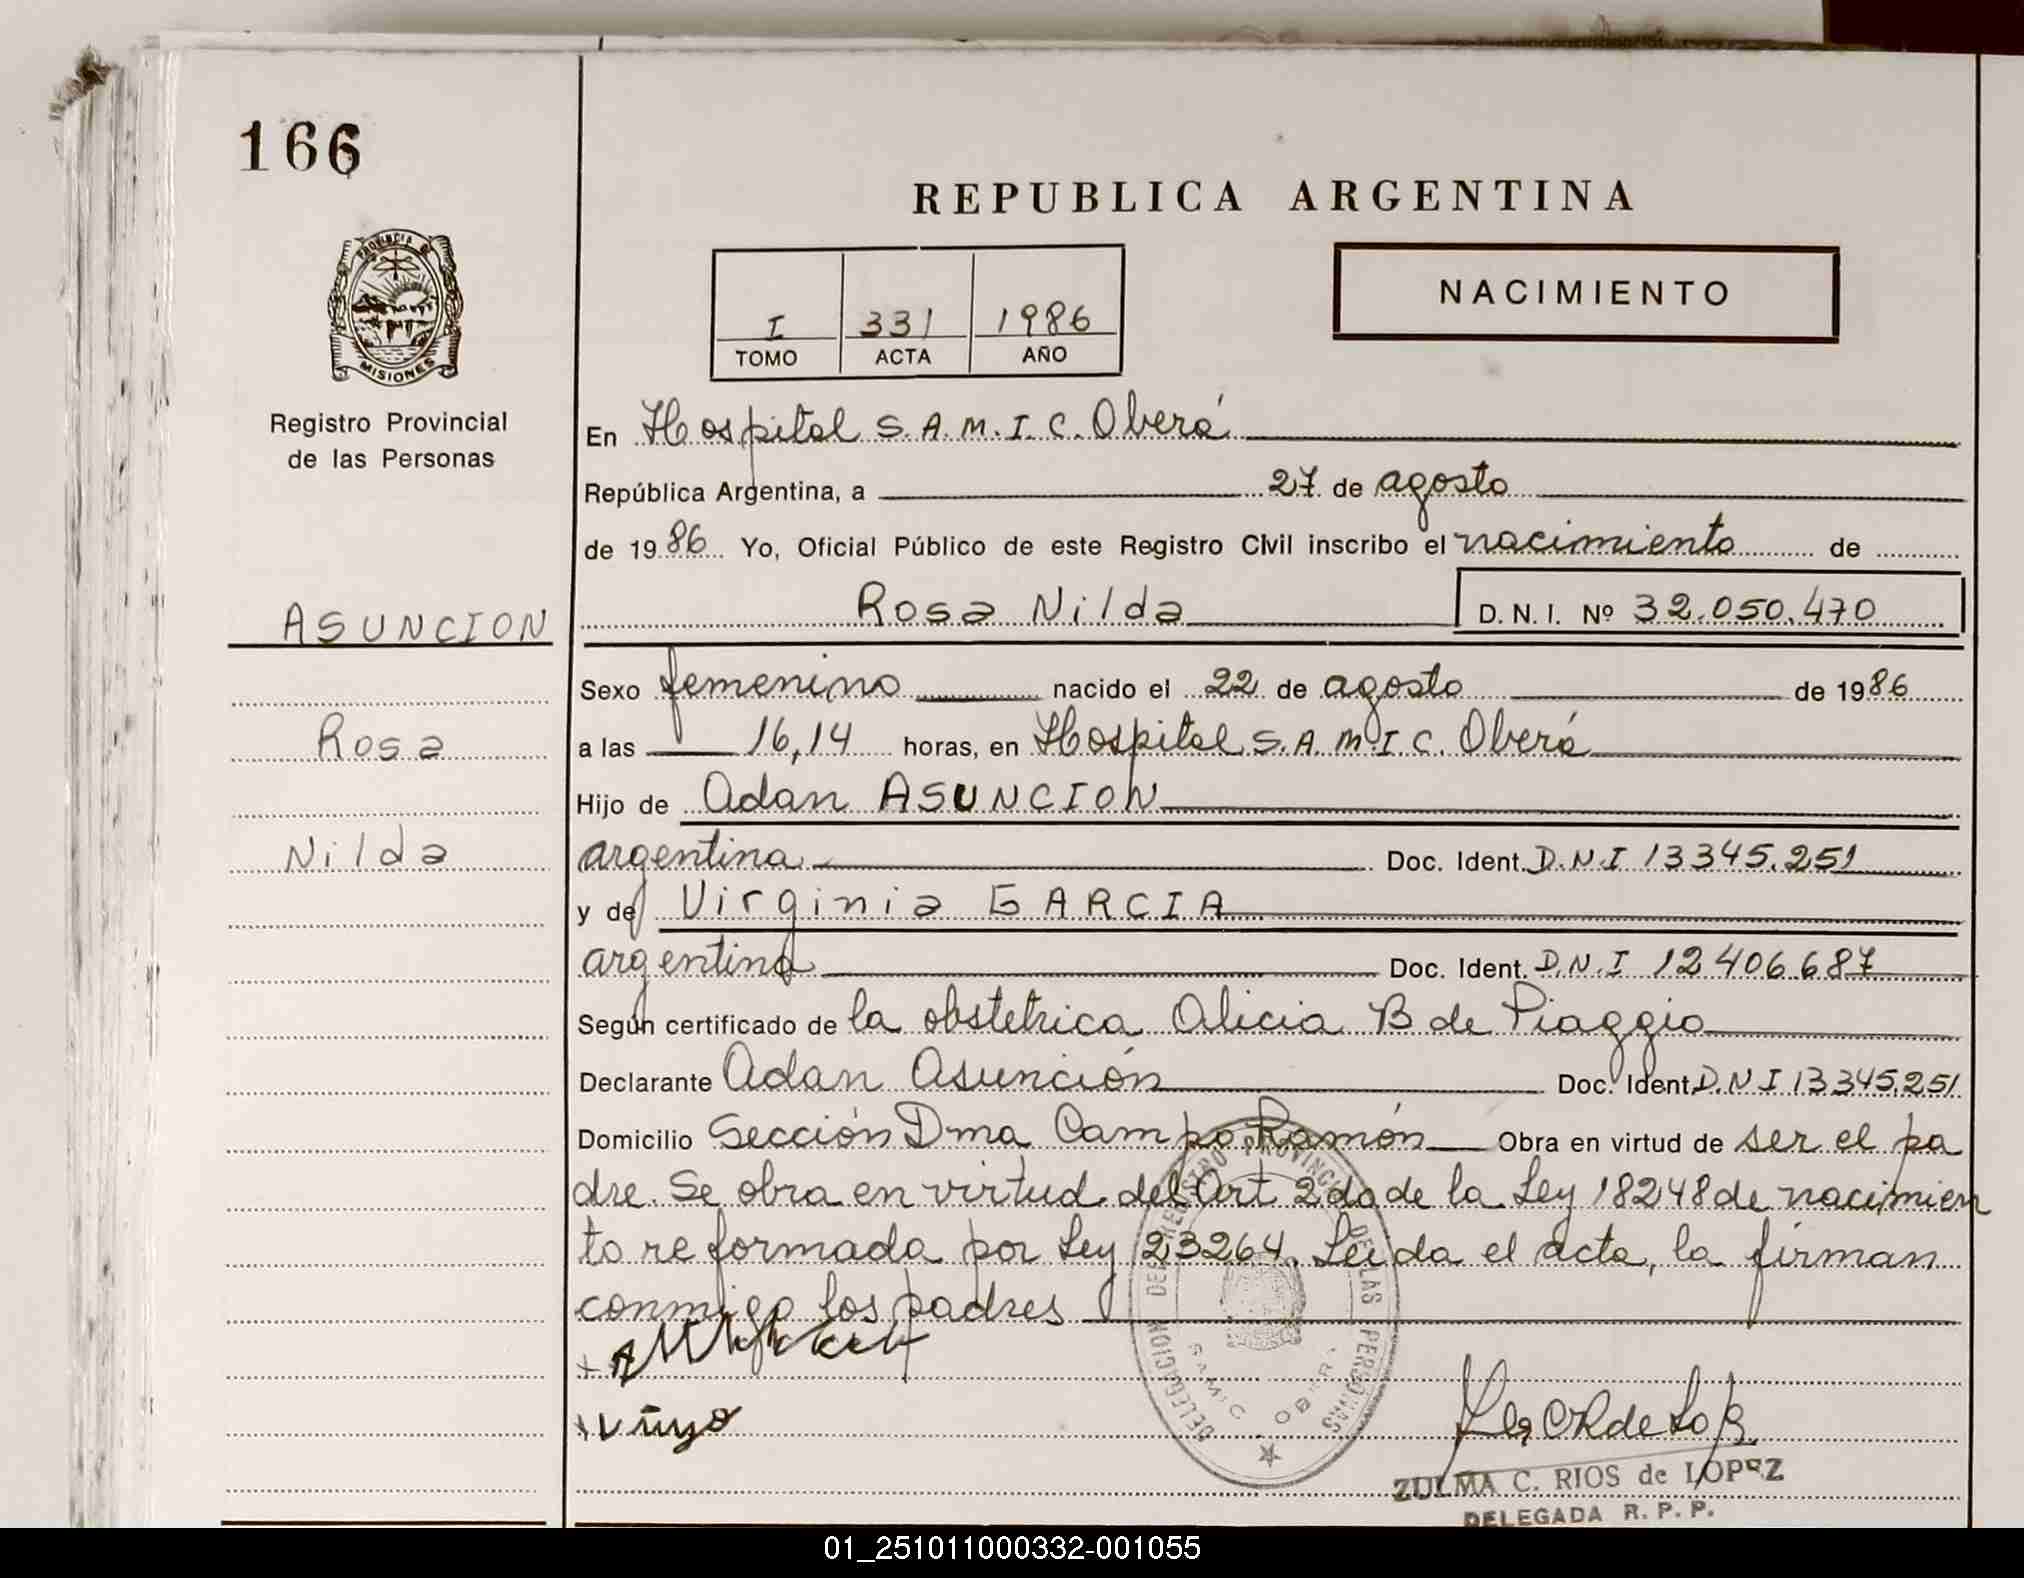 166
REPUBLICA ARGENTINA
PROVINCIA D
MISIONES
Registro Provincial
de las Personas
I 331 1986
TOMO ACTA AÑO
NACIMIENTO
En Hospital S.A.M.I.C. Oberá
República Argentina, a 27 de agosto
de 1986 Yo, Oficial Público de este Registro Civil inscribo el nacimiento de
ASUNCION
Rosa Nilda D. N. I. Nº 32.050.470
Sexo femenino nacido el 22 de agosto de 1986
Rosa
a las 16,14 horas, en Hospital S.A.M.I.C. Oberá
Hijo de Adan ASUNCION
Nilda
argentina Doc. Ident. D.N.I 13345.251
y de Virginia GARCIA
argentina Doc. Ident. D.N.I 12406687
Según certificado de la obstetrica Alicia B de Piaggio
Declarante Adan Asunción Doc. Ident. D.N I 13345.251
Domicilio Sección Dma Campo Ramón Obra en virtud de ser el pa
dre. Se obra en virtud del Art 2do de la Ley 18248 de nacimien
to reformada por Ley 23264. Leida el acta, la firman
conmigo los padres
DELEGACION DEL REGISTRO PROVINCIAL DE LAS PERSONAS
SAMIC OBERA
ZULMA C. RIOS de LOPEZ
DELEGADA R. P. P.
01_251011000332-001055